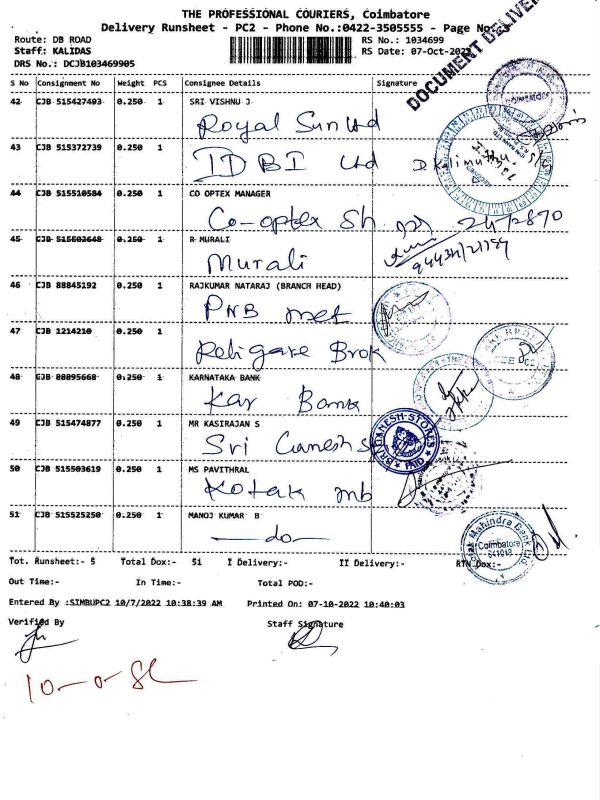 THE PROFESSIONAL COURIERS, Coimbatore
Delivery Runsheet - PC2 - Phone No.:0422-3505555 - Page No:5
Route: DB ROAD
Staff: KALIDAS
DRS No.: DCJB103469905
RS No.: 1034699
RS Date: 07-Oct-2022
DOCUMENT DELIVER
S No Consignment No Weight PCS Consignee Details Signature
42 CJB 515427493 0.250 1 SRI VISHNU J
Royal Sun Ltd
43 CJB 515372739 0.250 1
IDBI Ltd
44 CJB 515510584 0.250 1 CO OPTEX MANAGER
Co-optex Sh
45 CJB 515502648 0.250 1 R MURALI
Murali
46 CJB 88845192 0.250 1 RAJKUMAR NATARAJ (BRANCH HEAD)
PNB met
47 CJB 1214210 0.250 1
Religare Brok
48 CJB 88895668 0.250 1 KARNATAKA BANK
Kar Bank
49 CJB 515474877 0.250 1 MR KASIRAJAN S
Sri Ganesh S
GANESH STORES
PAID
50 CJB 515503619 0.250 1 MS PAVITHRAL
Kotak mb
51 CJB 515525250 0.250 1 MANOJ KUMAR B
-do-
Kotak Mahindra Bank Ltd
Coimbatore
641018
Tot. Runsheet:- 5 Total Dox:- 51 I Delivery:- II Delivery:- RTN Dox:-
Out Time:- In Time:- Total POD:-
Entered By :SIMBUPC2 10/7/2022 10:38:39 AM Printed On: 07-10-2022 10:40:03
Verified By Staff Signature